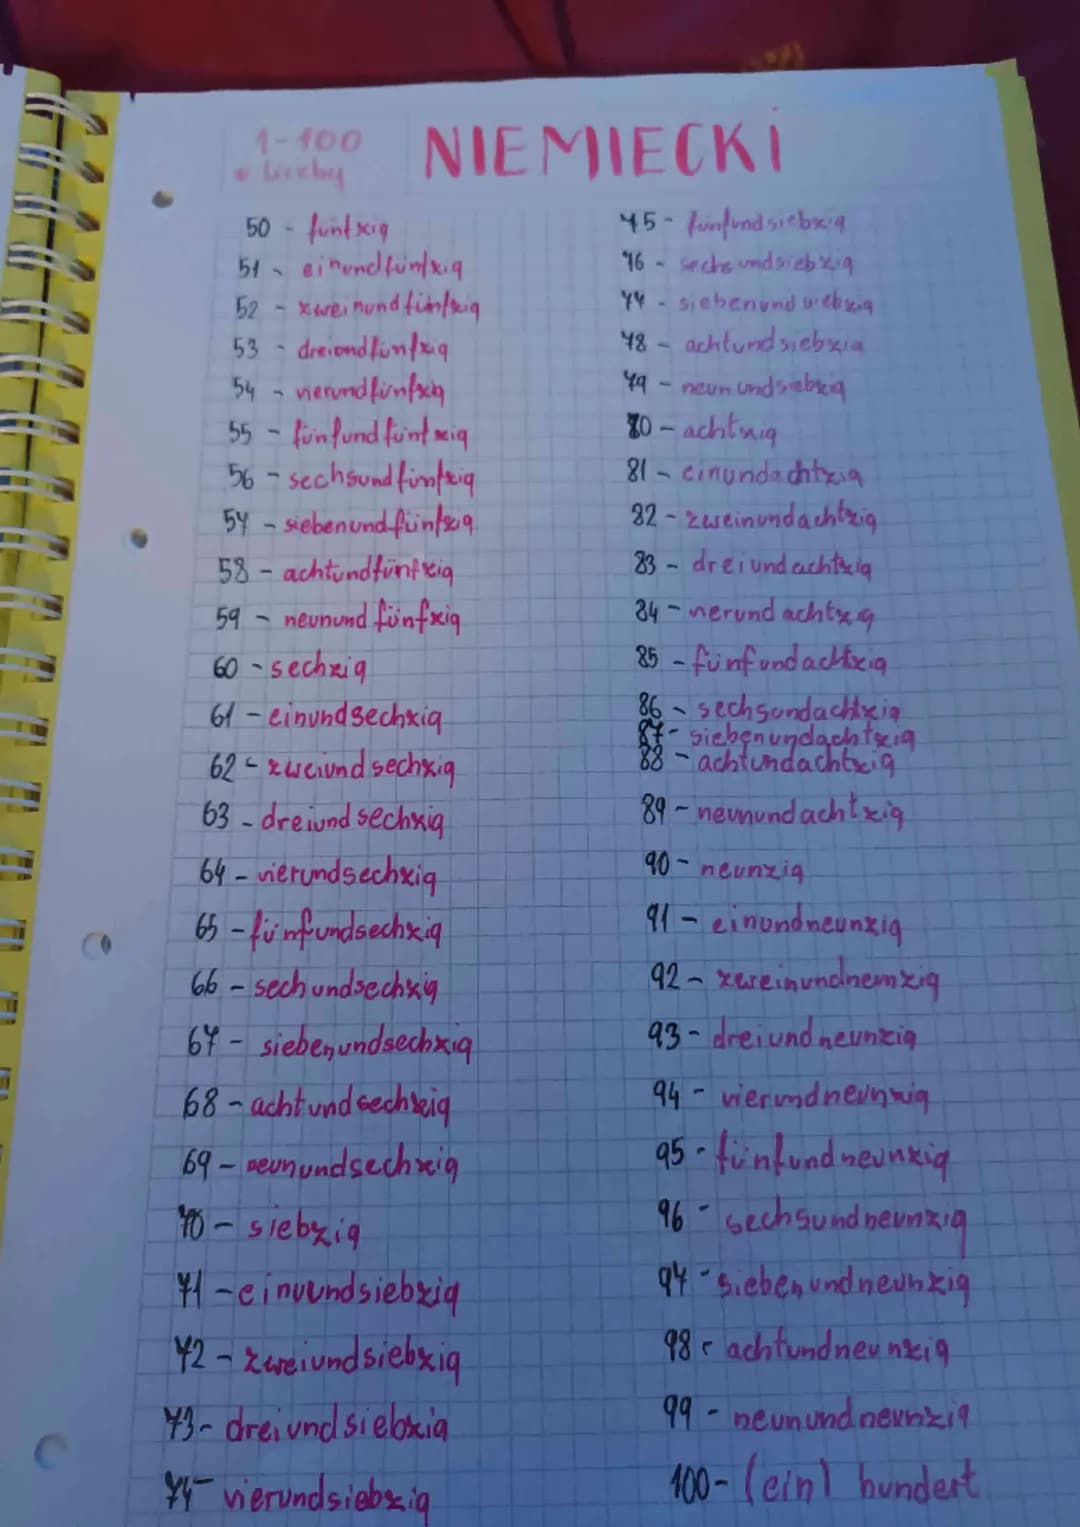 1-100
• liczby
NIEMIECKI
50 - fünfzig
51 - einundfünfzig
52 - zweinundfünfzig
53 - dreiundfünfzig
54 - vierundfünfzig
55 - fünfundfünfzig
56 - sechsundfünfzig
57 - siebenundfünfzig
58 - achtundfünfzig
59 - neunundfünfzig
60 - sechzig
61 - einundsechzig
62 - zweiundsechzig
63 - dreiundsechzig
64 - vierundsechzig
65 - fünfundsechzig
66 - sechundsechzig
67 - siebenundsechzig
68 - achtundsechzig
69 - neunundsechzig
70 - siebzig
71 - einuundsiebzig
72 - zweiundsiebzig
73 - dreiundsiebzig
74 - vierundsiebzig
75 - fünfundsiebzig
76 - sechsundsiebzig
77 - siebenundsiebzig
78 - achtundsiebzig
79 - neunundsiebzig
80 - achtzig
81 - einundachtzig
82 - zweinundachtzig
83 - dreiundachtzig
84 - vierundachtzig
85 - fünfundachtzig
86 - sechsundachtzig
87 - siebenundachtzig
88 - achtundachtzig
89 - neunundachtzig
90 - neunzig
91 - einundneunzig
92 - zweinundneunzig
93 - dreiundneunzig
94 - vierundneunzig
95 - fünfundneunzig
96 - sechsundneunzig
97 - siebenundneunzig
98 - achtundneunzig
99 - neunundneunzig
100 - (ein) hundert